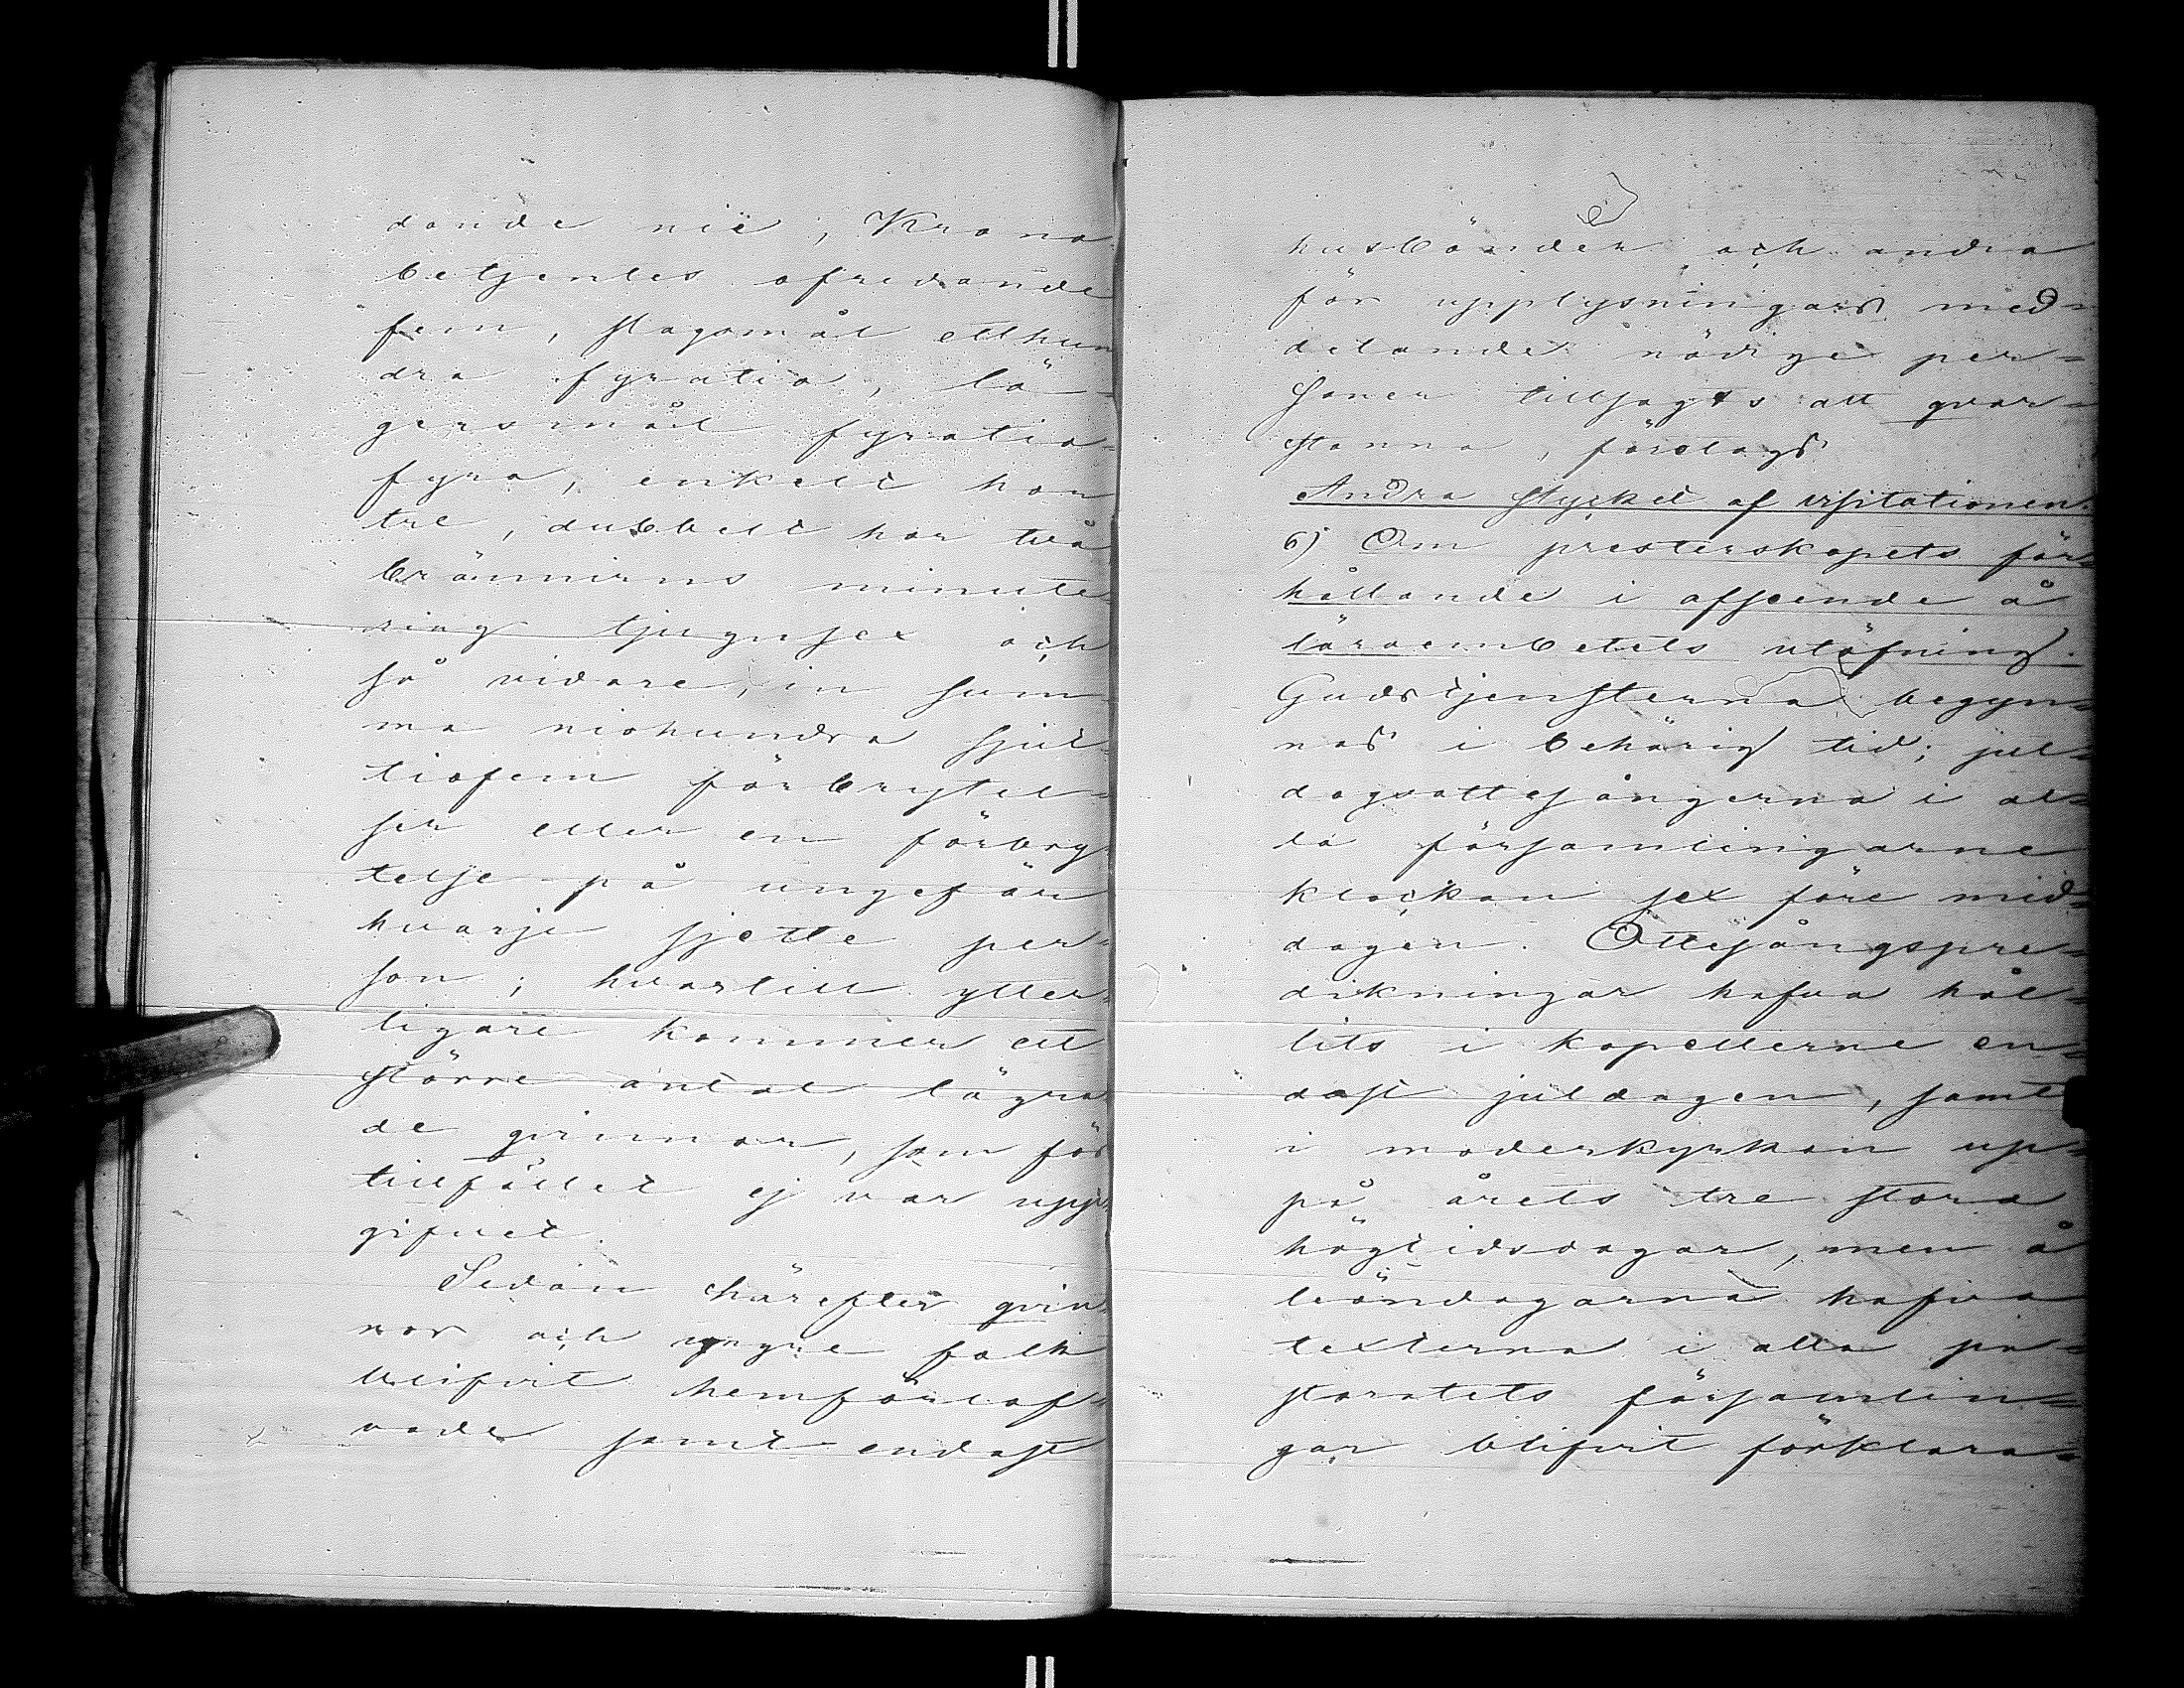 dande nie, Krono
betjentes ofredande
fem, slagsmål etthun
dra fyratio, lä-
gersmål fyratio-
fyra, enkelt hor
tre, dubbelt hor två
bränvins minute
ring tjugusex och
så vidare, in sum
ma niohundra sjut-
tiofem förbrytel-
ser eller en förbry
telse på ungefär
hvarje sjette per-
son; hvartill ytter-
ligare kommer ett
större antal lägra
de qvinnor, som för
tillfället ej var upp-
gifvet.
Sedan härefter qvin
nor och yngre folk
blifvit hemförlof-
vade samt endast
husbönder och andra
för upplysningars med-
delande nödige per-
soner tillsagts att qvar-
stanna, förelogs
Andra stycket af visitationen.
6) Om presterskapets för-
hållande i afseende å
läroembetets utöfning.
Gudstjensterna begyn-
nas i behörig tid; jul-
dagsottesångerna i al-
la församlingarne
klockan sex före mid-
dagen. Ottesångspre-
dikningar hafva hål-
lits i kapellerne en-
dast juldagen, samt
i moderkyrkan up-
på årets tre stora
högtidsdagar, men å
böndagarna hafva
texterna i alla pa-
storatets församlin-
gar blifvit förklara-